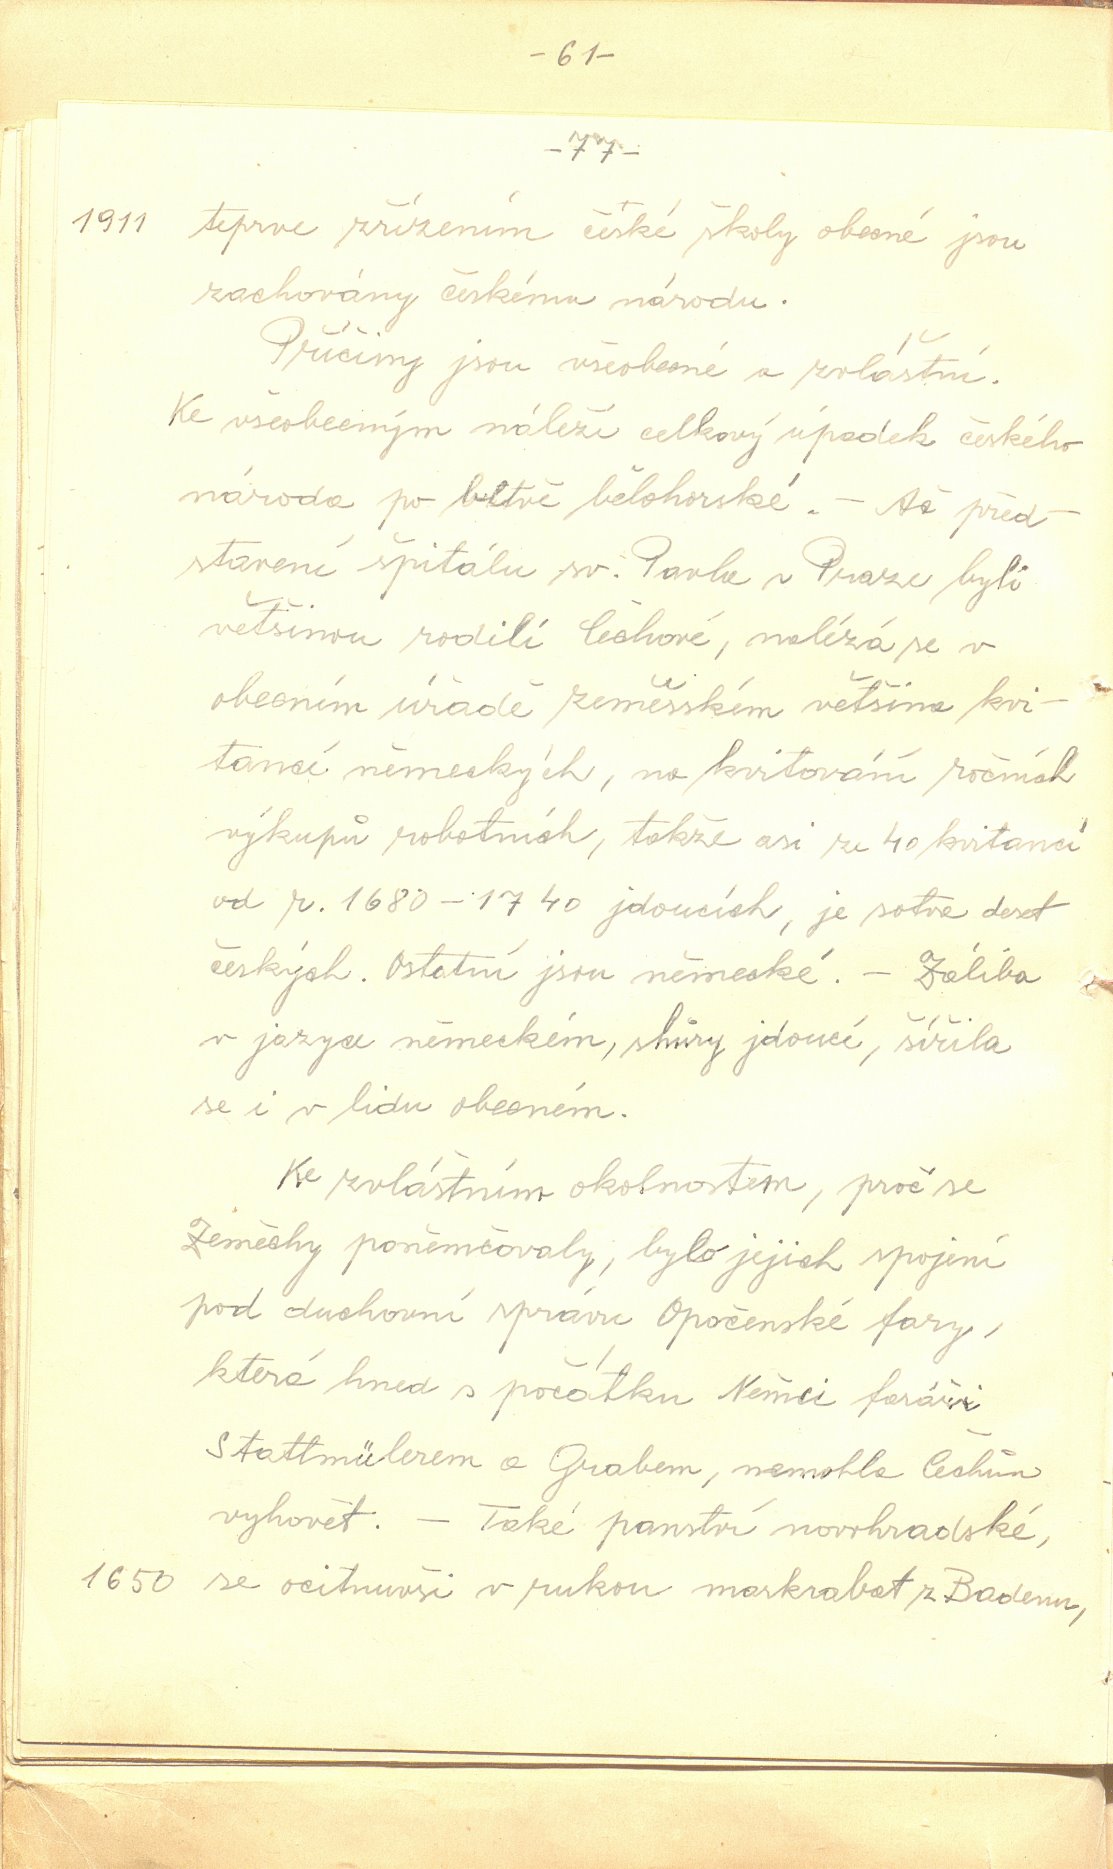 -61-
-77-
1911 teprve zřízením české školy obecné jsou
zachovány českému národu.
Příčiny jsou všeobecné a zvláštní.
Ke všeobecným náleží celkový úpadek českého
národa po bitvě bělohorské. - Ač před-
stavení špitálu sv. Pavla v Praze byli
většinou rodilí Čechové, nalézá se v
obecním úřadě zeměšském většina kvi-
tancí německých, na kvitování ročních
výkupů robotních, takže asi ze 40 kvitancí
od r. 1680-1740 jdoucích, je sotva deset
českých. Ostatní jsou německé. - Záliba
v jazyce německém, shůry jdoucí, šířila
se i v lidu obecném.
Ke zvláštním okolnostem, proč se
Zeměchy poněmčovaly, bylo jejich spojení
pod duchovní správu Opočenské fary,
která hned s počátku Němci faráři
Stattmülerem a Grabem, nemohla Čechům
vyhovět. - Také panství novohradské,
1650 se ocitnuvši v rukou markrabat z Badenu,